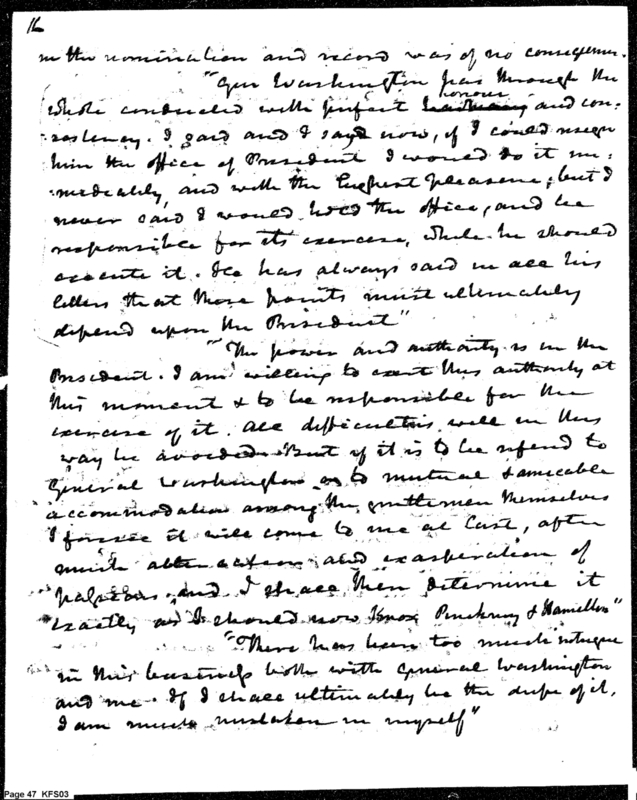 16
in the nomination and record was of no consequence.
"Gen Washington has through the
honour
whole conducted with perfect and con-
sistency. I said and I say now, if I could resign
him the office of President I would do it im-
mediately, and with the highest pleasure; but I
never said I would hold the office, and be
responsible for its exercise, while he should
execute it. He has always said in all his
letters that these points must ultimately
depend upon the President"
"The power and authority is in the
President. I am willing to exert this authority at
this moment & to be responsible for the
exercise of it. All difficulties will in this
way be avoided. But if it is to be referred to
General Washington or to mutual & amicable
accommodation among the gentlemen themselves
I forsee it will come to me at last, after
much altercation and exasperation of
passions, and I shall then determine it
exactly as I should now Knox Pinckney & Hamilton"
"There has been too much intrigue
in this business both with General Washington
and me. If I shall ultimately be the dupe of it,
I am much mistaken in myself"
Page 47 KFS03